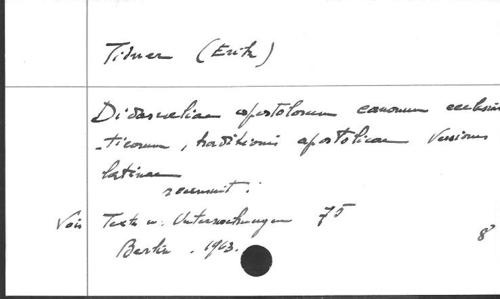 Tidner (Erik)
Didascaliae apostolorum canonum ecclesias
-ticorum, traditionis apostolicae versiones
latinae
recensuit.
Voir Texte u. Untersuchungen 75
Berlin . 1963.
8°